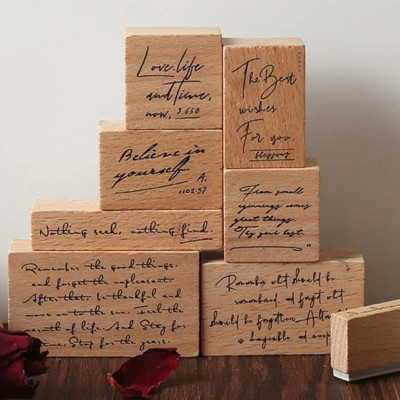 Love.life
and Time,
now, 3.650
The Best
wishes
For you,
blessing
Believe in
yourself
A.
1102.97
From small
beginnings comes
great things.
Try your best.
Nothing seek, nothing find.
Remember the good things
and forget the unpleasant.
After that. be thankful and
move on to the sun. Feel the
warmth of life. And Stay for
time, Stop for the years.
Remember what should be
remembered, and forget what
should be forgotten. Alter
is changeable, and accept